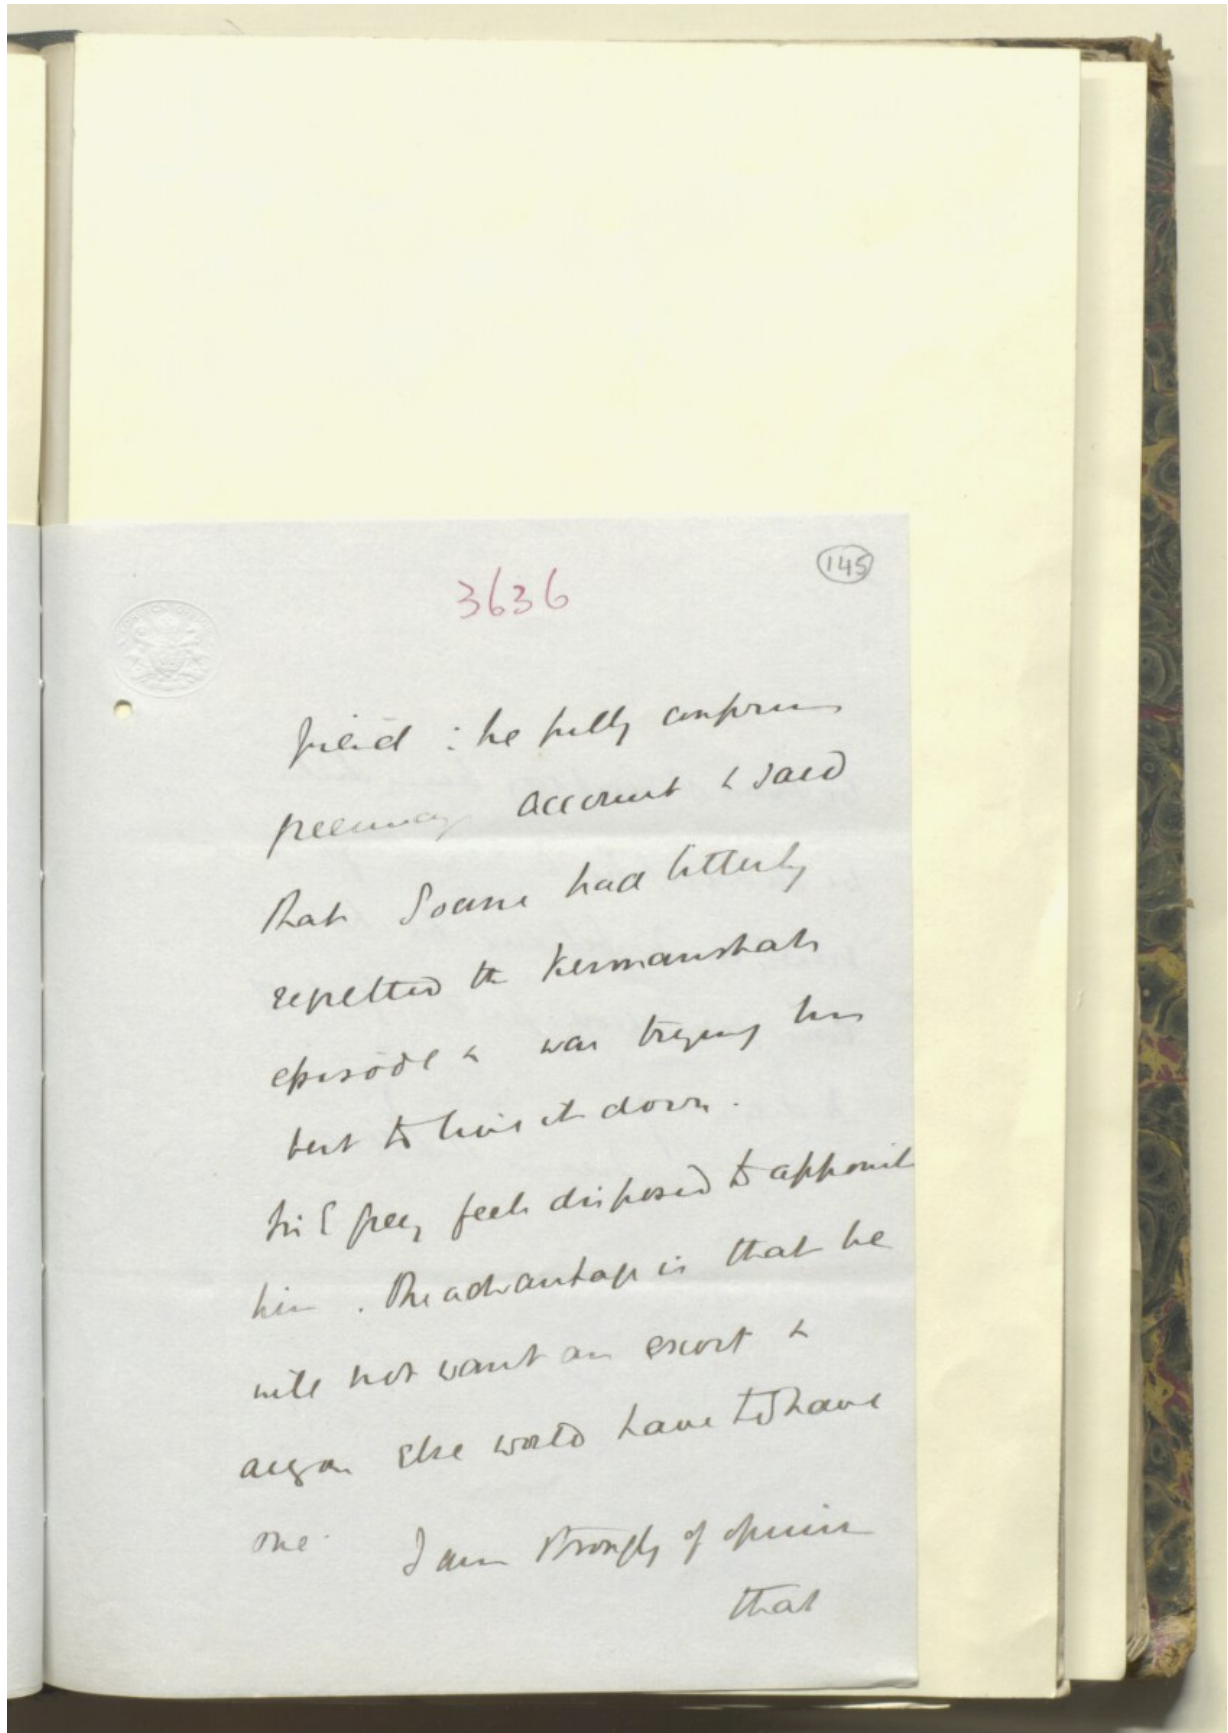 3636
145
friend : he fully confirms
Greenway's account & said
that Soane had bitterly
repented the Kermanshah
episode & was trying his
best to live it down.
Sir E Grey feels disposed to appoint
him. The advantage is that he
will not want an escort &
anyone else would have to have
one. I am strongly of opinion
that